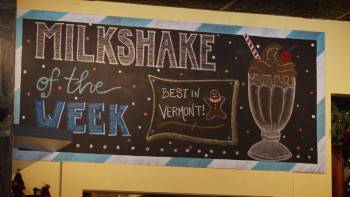 MILKSHAKE
of the
WEEK
BEST IN
VERMONT!